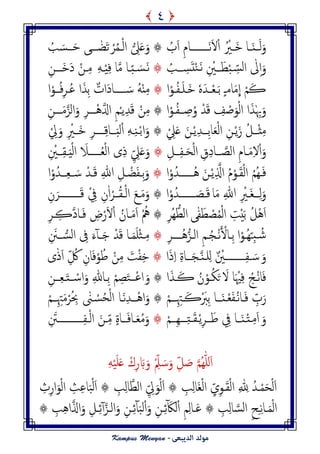 ﴿ ٤ ﴾
وَلَنَا خَيْرُ الْأَنَامِ أَبُ ۞ وَعَلِيُّ الْمُرْتَضَى حَسَبُ
وَإِلَى السِّبْطَيْنِ نَنْتَسِبُ ۞ نَسَبًا مَّا فِيْهِ مِنْ دَخَنِ
كَمْ إِمَامٍ بَعْدَهُ خَلَفُوْا ۞ مِنْهُ سَادَاتٌ بِذَا عُرِفُوْا
وَبِهٰذَا الْوَصْفِ قَدْ وُصِفُوْا ۞ مِنْ قَدِيْمِ الدَّهْرِ وَالزَّمَنِ
مِثْلُ زَيْنِ الْعَابِدِيْنَ عَلِيْ ۞ وَابْنِهِ الْبَاقِرِ خَيْرِ وَلِيْ
وَالْإِمَامِ الصَّادِقِ الْحَفِلِ ۞ وَعَلِيٍّ ذِي الْعُلَا الْيَقِيْنِ
فَهُمُ الْقَوْمُ الَّذِيْنَ هُدُوْا ۞ وَبِفَضْلِ اللهِ قَدْ سَعِدُوْا
وَلِغَيْرِ اللهِ مَا قَصَدُوْا ۞ وَمَعَ الْقُرْاٰنِ فِيْ قَرَنِ
أَهْلُ بَيْتِ الْمُصْطَفَى الطُّهُرِ ۞ هُمْ أَمَانُ الْأَرْضِ فَادَّكِرِ
شُبِّهُوْا بِالْأَنْجُمِ الزُّهُرِ ۞ مِثْلَمَا قَدْ جَآءَ فِي السُّنَنِ
وَسَفِيْنٌ لِلنَّجَاةِ إِذَا ۞ خِفْتَ مِنْ طُوْفَانِ كُلِّ أَذٰى
فَانْجُ فِيْهَا لَا تَكُوْنُ كَذَا ۞ وَاعْتَصِمْ بِاللهِ وَاسْتَعِنِ
رَبِّ فَانْفَعْنَا بِبَرْكَتِهِمْ ۞ وَاهْدِنَا الْحُسْنٰى بِحُرْمَتِهِمْ
وَأَمِتْنَا فِيْ طَرِيْقَتِهِمْ ۞ وَمُعَافَاةٍ مِّنَ الْفِتَنِ
اَللّٰهُمَّ صَلِّ وَسَلِّمْ وَبَارِكْ عَلَيْهِ
اَلْحَمْدُ لِلهِ الْقَوِيِّ الْغَالِبِ ۞ اَلْوَلِيِّ الطَّالِبِ ۞ اَلْبَاعِثِ الْوَارِثِ
الْمَانِحِ السَّالِبِ ۞ عَالِمِ الْكَآئِنِ وَالْبَآئِنِ وَالزَّآئِلِ وَالذَّاهِبِ ۞
Kampus Menyan - مولد الديبعى